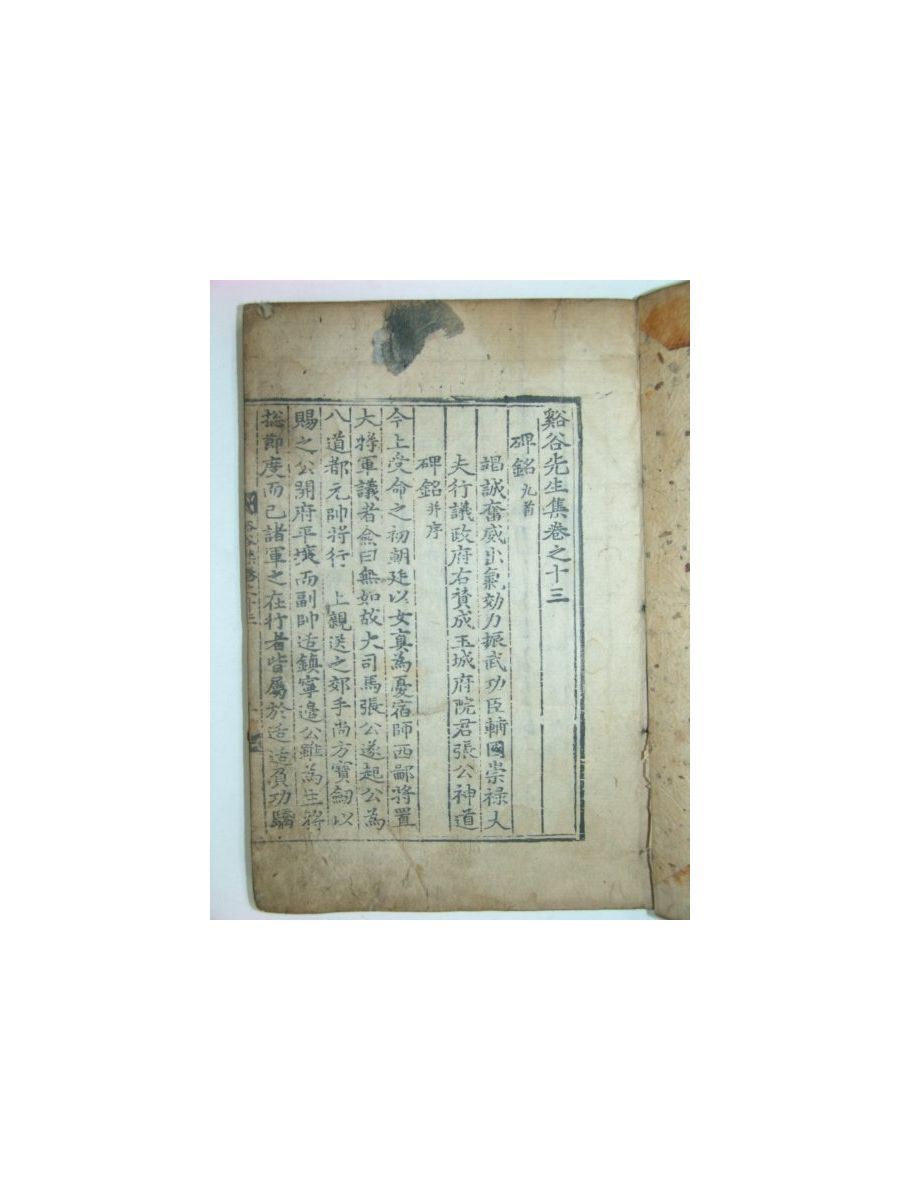 谿谷先生集卷之十三
碑銘 九首
竭誠奮威出氣効力振武功臣輔國崇祿大
夫行議政府右贊成玉城府院君張公神道
碑銘 幷序
今上受命之初朝廷以女真為憂宿師西鄙將置
大將軍議者僉曰無如故大司馬張公遂起公為
八道都元帥將行 上親送之郊手尚方寶劒以
賜之公開府平壤而副帥适鎮寧邊公雖為主將
揔節度而已諸軍之在行者皆屬於适适負功驕